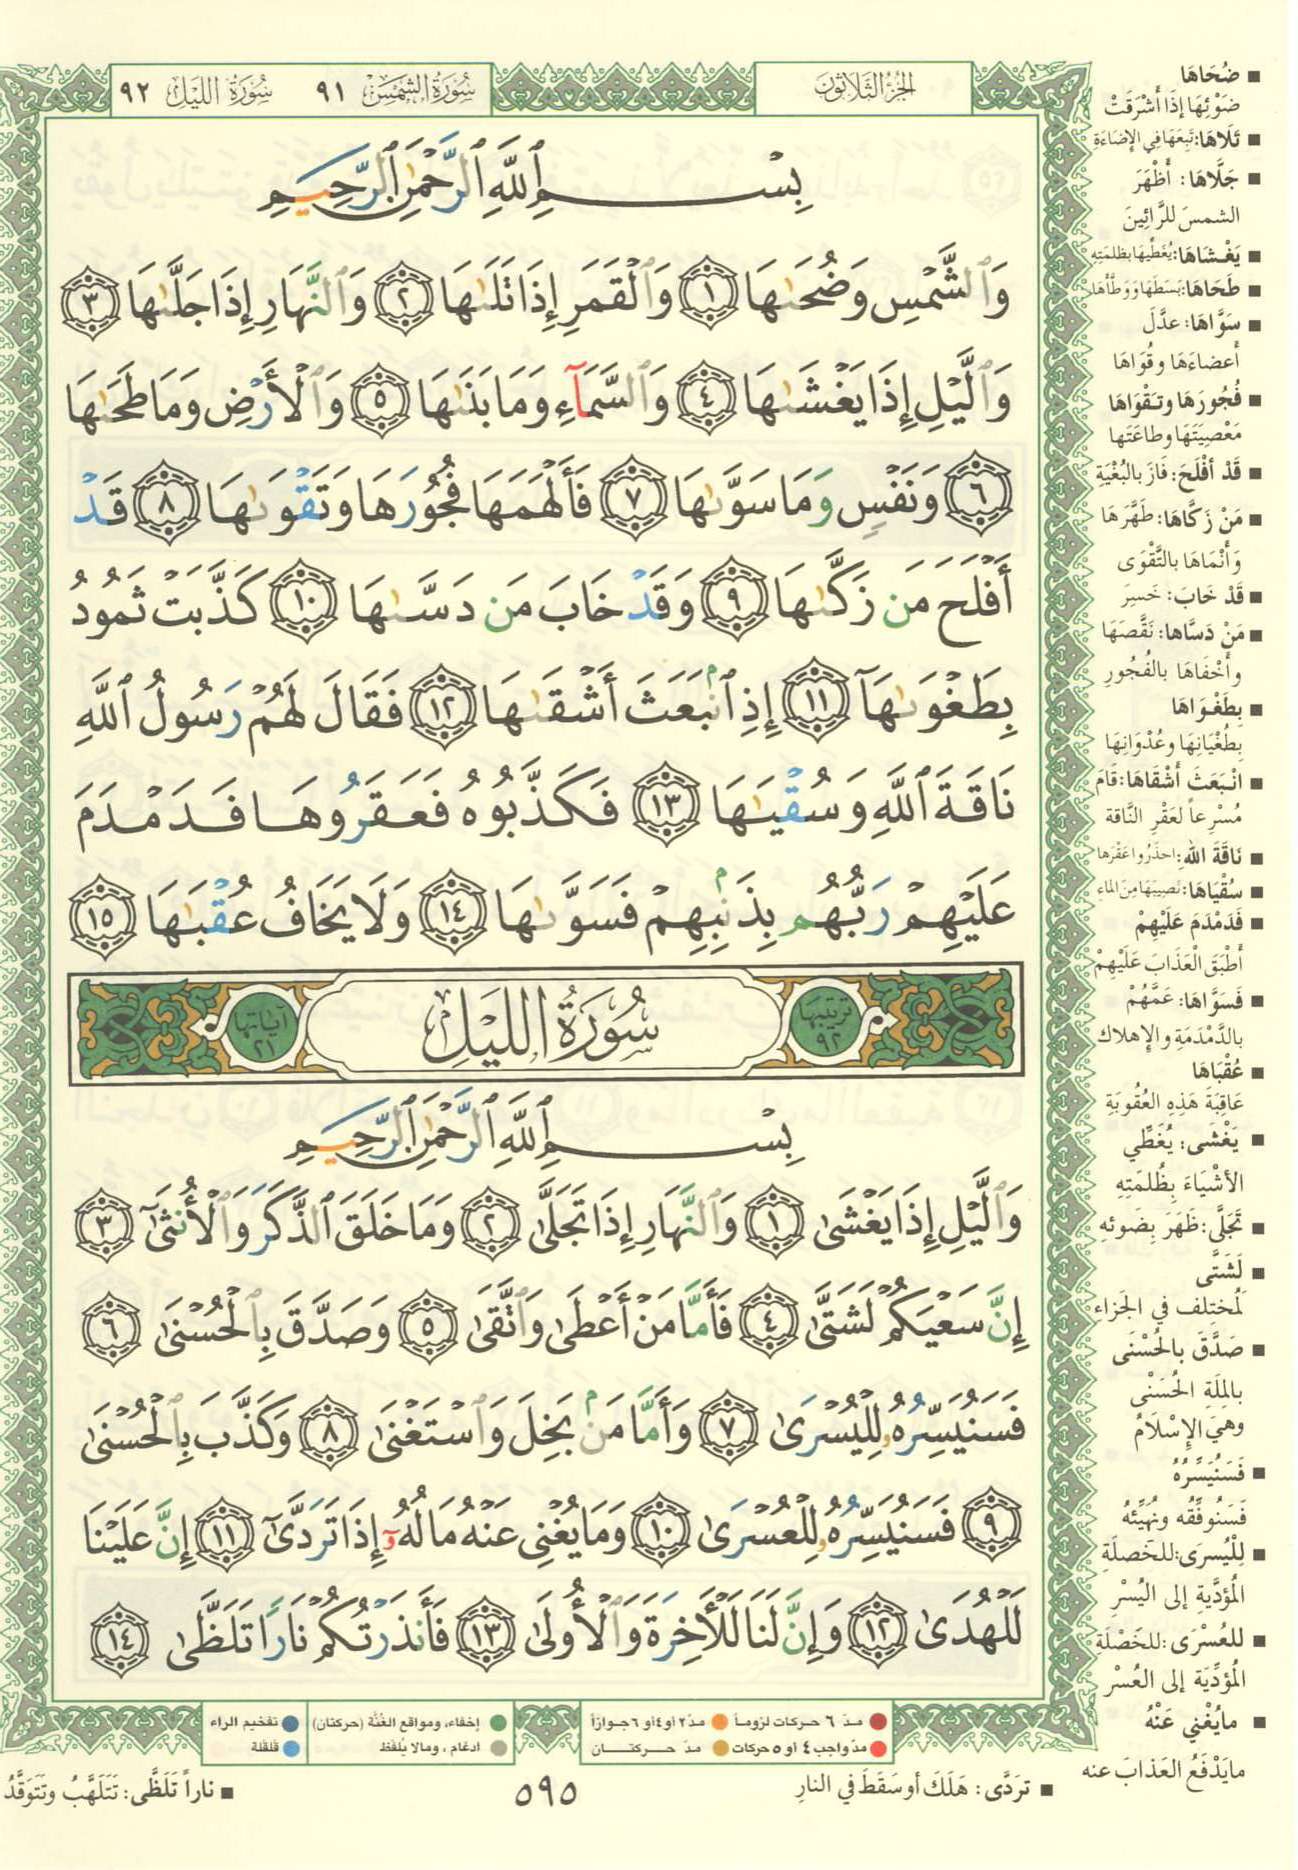 الجزء الثلاثون
سورة الشمس ٩١
سورة الليل ٩٢
بِسْمِ ٱللَّهِ ٱلرَّحْمَٰنِ ٱلرَّحِيمِ
وَٱلشَّمْسِ وَضُحَىٰهَا ١ وَٱلْقَمَرِ إِذَا تَلَىٰهَا ٢ وَٱلنَّهَارِ إِذَا جَلَّىٰهَا ٣
وَٱلَّيْلِ إِذَا يَغْشَىٰهَا ٤ وَٱلسَّمَآءِ وَمَا بَنَىٰهَا ٥ وَٱلْأَرْضِ وَمَا طَحَىٰهَا
٦ وَنَفْسٍ وَمَا سَوَّىٰهَا ٧ فَأَلْهَمَهَا فُجُورَهَا وَتَقْوَىٰهَا ٨ قَدْ
أَفْلَحَ مَن زَكَّىٰهَا ٩ وَقَدْ خَابَ مَن دَسَّىٰهَا ١٠ كَذَّبَتْ ثَمُودُ
بِطَغْوَىٰهَآ ١١ إِذِ ٱنۢبَعَثَ أَشْقَىٰهَا ١٢ فَقَالَ لَهُمْ رَسُولُ ٱللَّهِ
نَاقَةَ ٱللَّهِ وَسُقْيَٰهَا ١٣ فَكَذَّبُوهُ فَعَقَرُوهَا فَدَمْدَمَ
عَلَيْهِمْ رَبُّهُم بِذَنۢبِهِمْ فَسَوَّىٰهَا ١٤ وَلَا يَخَافُ عُقْبَٰهَا ١٥
ترتيبها ٩٢
سورة الليل
آياتها ٢١
بِسْمِ ٱللَّهِ ٱلرَّحْمَٰنِ ٱلرَّحِيمِ
وَٱلَّيْلِ إِذَا يَغْشَىٰ ١ وَٱلنَّهَارِ إِذَا تَجَلَّىٰ ٢ وَمَا خَلَقَ ٱلذَّكَرَ وَٱلْأُنثَىٰٓ ٣
إِنَّ سَعْيَكُمْ لَشَتَّىٰ ٤ فَأَمَّا مَنْ أَعْطَىٰ وَٱتَّقَىٰ ٥ وَصَدَّقَ بِٱلْحُسْنَىٰ ٦
فَسَنُيَسِّرُهُۥ لِلْيُسْرَىٰ ٧ وَأَمَّا مَنۢ بَخِلَ وَٱسْتَغْنَىٰ ٨ وَكَذَّبَ بِٱلْحُسْنَىٰ
٩ فَسَنُيَسِّرُهُۥ لِلْعُسْرَىٰ ١٠ وَمَا يُغْنِى عَنْهُ مَالُهُۥٓ إِذَا تَرَدَّىٰٓ ١١ إِنَّ عَلَيْنَا
لَلْهُدَىٰ ١٢ وَإِنَّ لَنَا لَلْأَخِرَةَ وَٱلْأُولَىٰ ١٣ فَأَنذَرْتُكُمْ نَارًا تَلَظَّىٰ ١٤
■ ضُحَاهَا
ضَوْئِهَا إِذَا أَشْرَقَتْ
■ تَلَاهَا: تَبِعَهَا فِي الإِضَاءَةِ
■ جَلَّاهَا: أَظْهَرَ
الشمسَ للرَّائِينَ
■ يَغْشَاهَا: يُغَطِّيهَا بِظُلمَتِهِ
■ طَحَاهَا: بَسَطَهَا وَوَطَّأَهَا
■ سَوَّاهَا: عدَّلَ
أَعضاءَهَا وقُوَاهَا
■ فُجُورَهَا وتَقْوَاهَا
مَعْصِيَتَهَا وطاعَتَها
■ قَدْ أَفْلَحَ: فَازَ بالبُغْيَةِ
■ مَنْ زَكَّاهَا: طَهَّرَهَا
وَأَنْمَاهَا بالتَّقْوَى
■ قَدْ خَابَ: خَسِرَ
■ مَنْ دَسَّاها: نَقَّصَهَا
وأَخْفَاهَا بالفُجُورِ
■ بِطَغْوَاهَا
بِطُغْيَانِهَا وعُدْوَانِهَا
■ انْبَعَثَ أَشْقَاهَا: قَامَ
مُسْرِعاً لعَقْرِ النَّاقة
■ نَاقَةَ اللهِ: احذَرُوا عَقْرَها
■ سُقْيَاهَا: نَصِيبَهَا مِنَ الماءِ
■ فَدَمْدَمَ عَلَيْهِمْ
أَطْبَقَ الْعَذَابَ عَلَيْهِمْ
■ فَسَوَّاهَا: عَمَّهُمْ
بالدَّمْدَمَةِ والإهلاك
■ عُقْبَاهَا
عَاقِبَةَ هَذِهِ العُقُوبَةِ
■ يَغْشَى: يُغَطِّي
الأشْيَاءَ بِظُلْمَتِهِ
■ تَجَلَّى: ظَهَرَ بِضَوئِهِ
■ لَشَتَّى
لَمُختلِف في الجَزاء
■ صَدَّقَ بالحُسْنَى
بالمِلَّةِ الحُسْنَى
وهيَ الإِسْلَامُ
■ فَسَنُيَسِّرُهُ
فَسَنُوفِّقُه ونُهَيِّئُهُ
■ لِلْيُسرَى: للخَصلَةِ
المُؤدِّيةِ إلى اليُسْرِ
■ للعُسْرَى: للخَصْلَةِ
المُؤدِّيَة إلى العُسْر
■ مايُغْنِي عَنْهُ
مايَدْفَعُ العَذابَ عنه
مدّ ٦ حركات لزوماً
مدّ ٢ أو ٤ أو ٦ جوازاً
إخفاء، ومواقع الغُنَّة (حركتان)
تفخيم الراء
مدّ واجب ٤ أو ٥ حركات
مدّ حركتان
ادغام، ومالا يُلفَظ
قلقلة
■ تردَّى: هَلَكَ أو سَقَطَ في النارِ
٥٩٥
■ ناراً تَلَظَّى: تَتَلَهَّبُ وتَتَوَقَّدُ